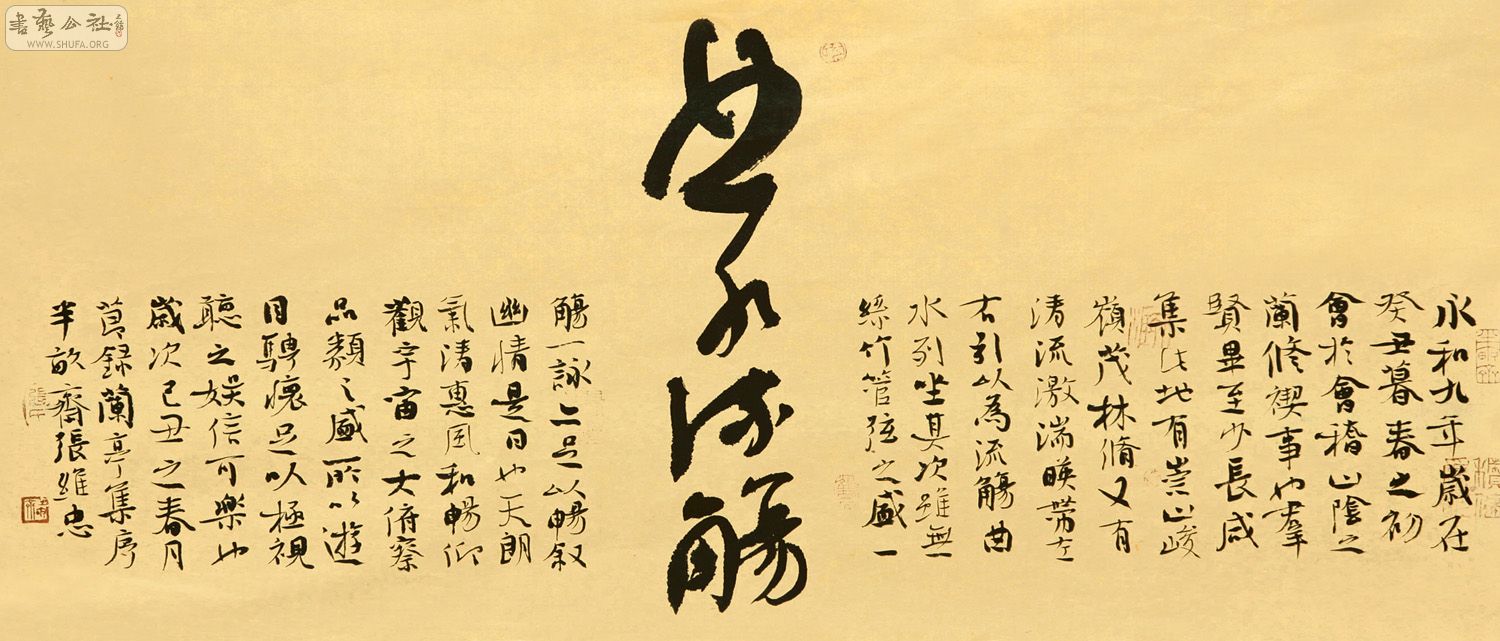 永和九年歲在
癸丑暮春之初
會於會稽山陰之
蘭脩禊事也羣
賢畢至少長咸
集此地有崇山峻
嶺茂林脩又有
清流激湍暎帶左
右引以為流觴曲
水列坐其次雖無
絲竹管弦之盛一
曲水流觴
觴一詠二足以暢叙
幽情是日也天朗
氣清惠風和暢仰
觀宇宙之大俯察
品類之盛所以遊
目騁懷足以極視
聽之娛信可樂也
歲次己丑之春月
節錄蘭亭集序
半畝齋張維忠
書藝公社
WWW.SHUFA.ORG